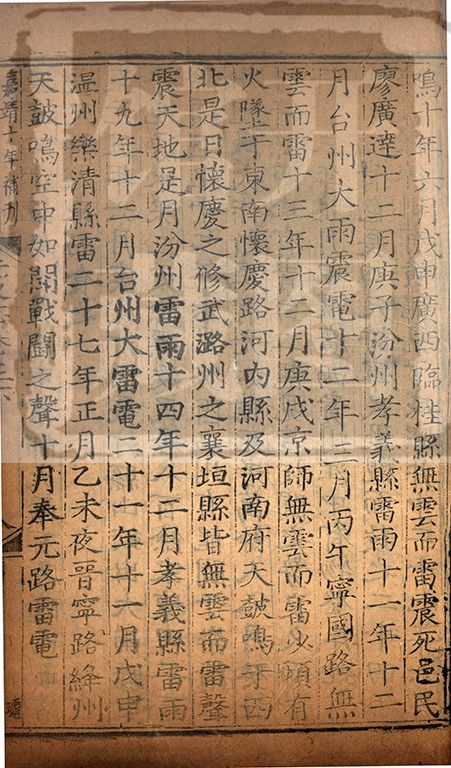 鳴十年六月戊申廣西臨桂縣無雲而雷震死邑民
廖廣達十二月庚子汾州孝義縣雷雨十一年十二
月台州大雨震電十二年三月丙午寧國路無
雲而雷十三年十二月庚戌京師無雲而雷少頃有
火墜于東南懷慶路河內縣及河南府天鼓鳴于西
北是日懷慶之修武潞州之襄垣縣皆無雲而雷聲
震天地是月汾州雷雨十四年十二月孝義縣雷雨
十九年十二月台州大雷電二十一年十一月戊申
温州樂清縣雷二十七年正月乙未夜晋寧路絳州
天鼓鳴空中如聞戰鬪之聲十月奉元路雷電
嘉靖十年補刊